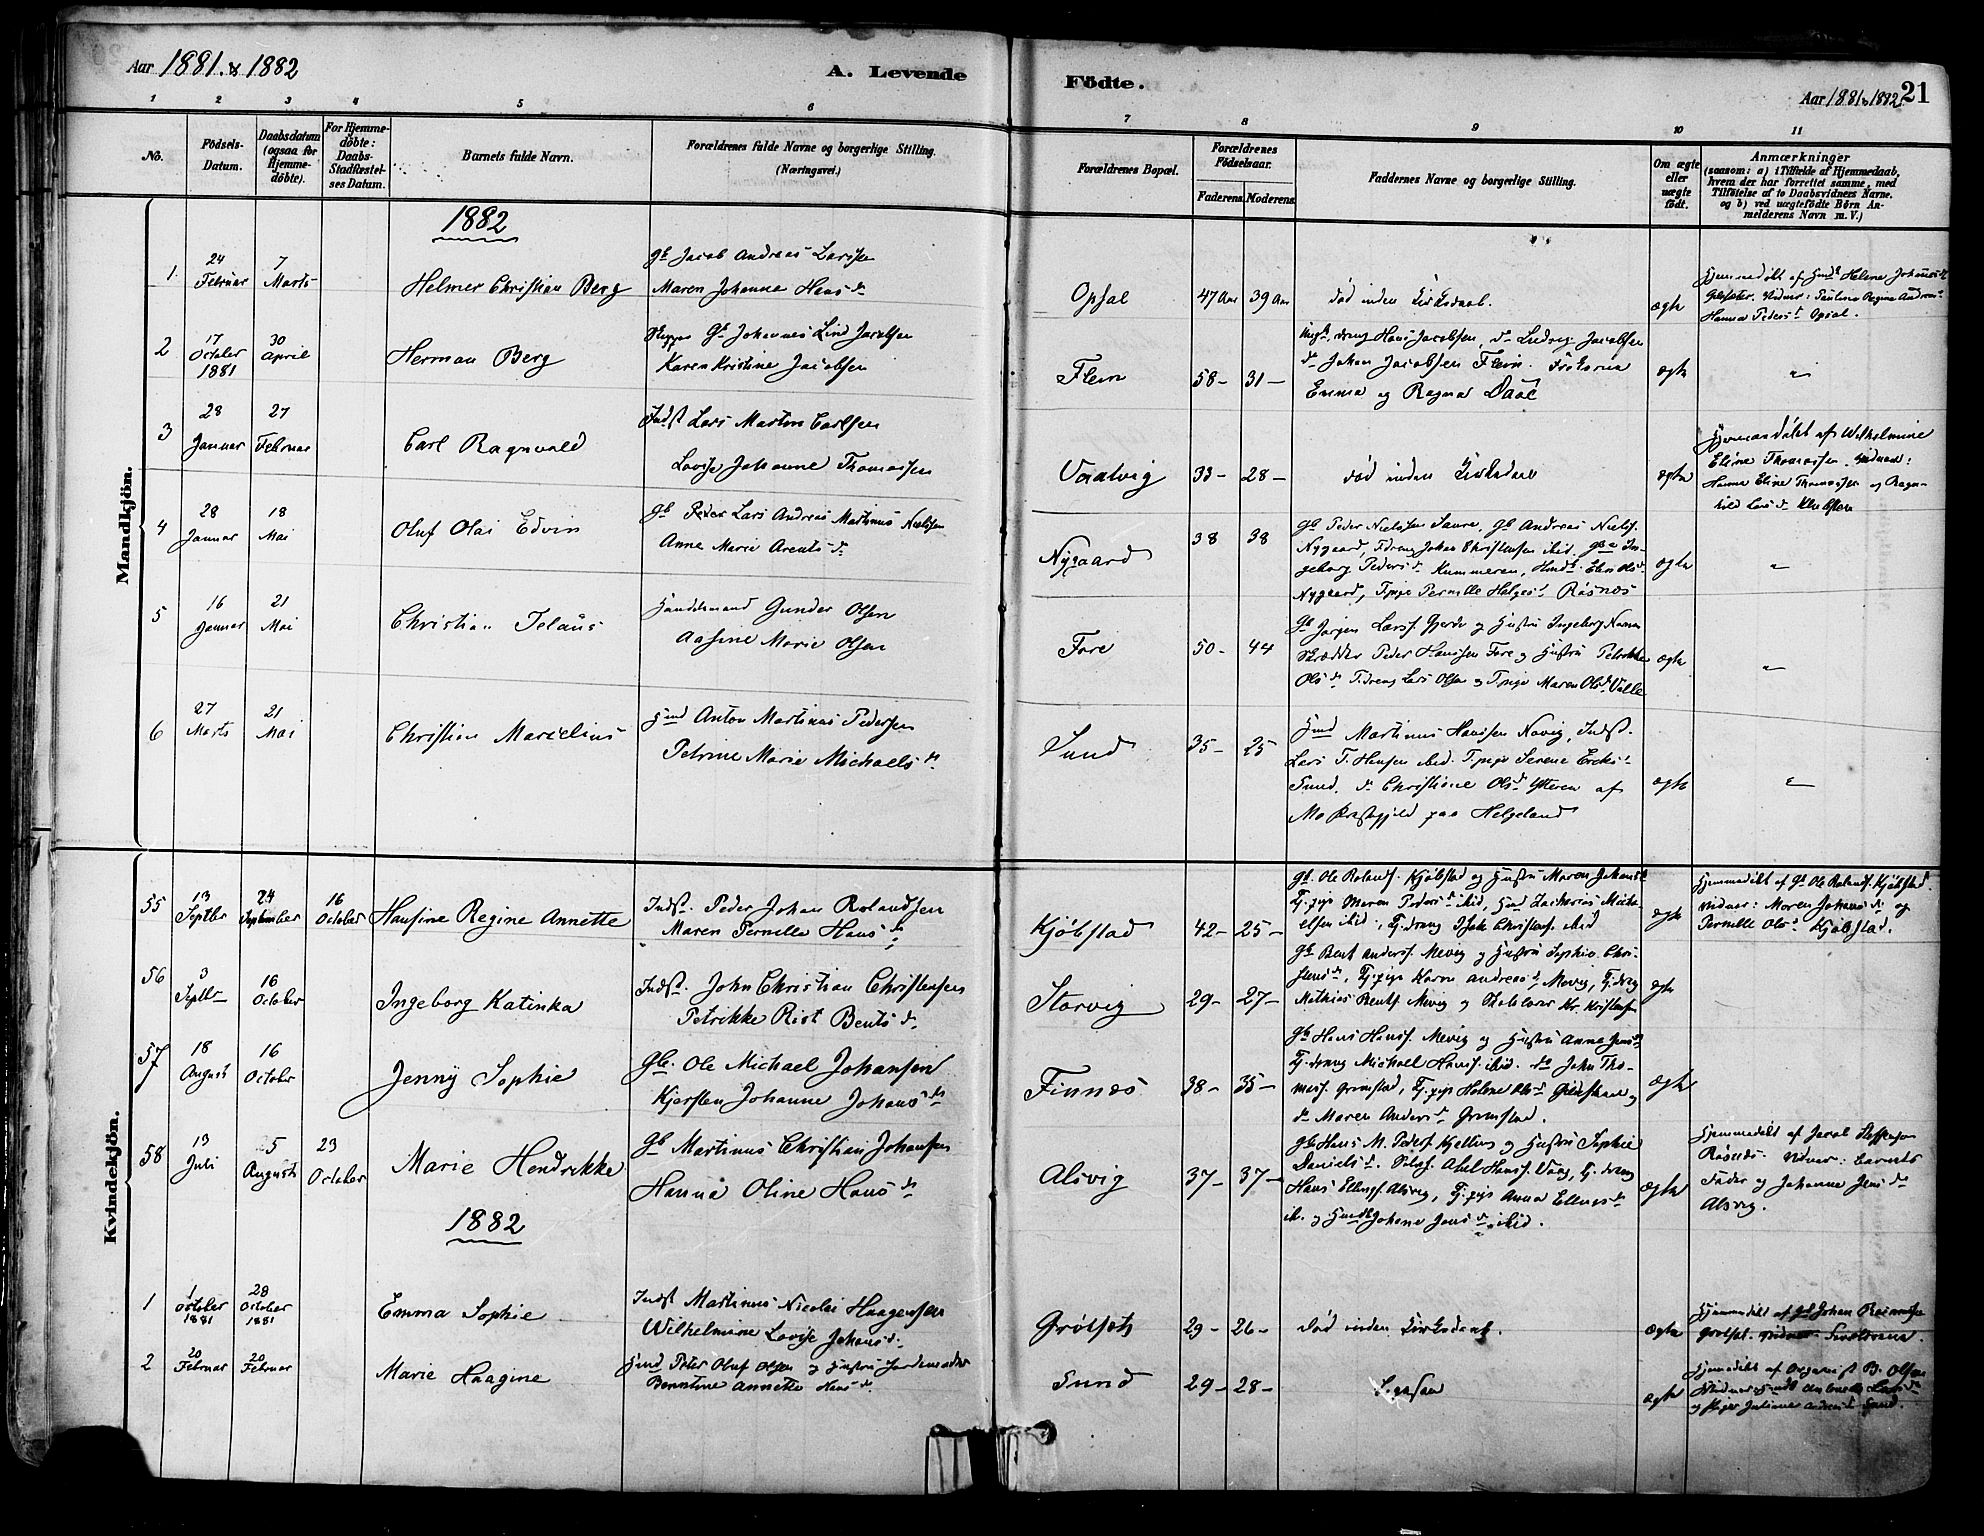 Aar 1881 & 1882
A. Levende
Födte.
Aar 1881 & 1882
21
1 2 3 4 5 6 7 8 9 10 11
No.
Födsels-
Datum.
Daabsdatum
(ogsaa for
Hjemme-
döbte).
For Hjemme-
döbte:
Daabs-
Stadfæstel-
ses Datum.
Barnets fulde Navn.
Forældrenes fulde Navne og borgerlige Stilling.
(Næringsvei.)
Forældrenes Bopæl.
Forældrenes
Födselsaar.
Faderens. Moderens.
Faddernes Navne og borgerlige Stilling.
Om ægte
eller
uægte
födt.
Anmærkninger
(saasom: a) i Tilfælde af Hjemmedaab,
hvem der har forrettet samme, med
Tilföielse af to Daabsvidners Navne.
og b) ved uægtefödte Börn An-
melderens Navn m. V.)
Mandkjön.
1882
1
24
Februar
7
Marts
Helmer Christian Berg
Gb Jacob Andreas Larssen
Maren Johanne Hans d.
Opsal
47 Aar 39 Aar
död inden Kirkedaab.
ægte
Hjemmedöbt af Helene Johannes
Vidner: Pauline Regine Andreas
Hanna Peders d. Opsal.
2
17
October
1881
30
April
Herman Berg
Gb Johannes Lind Jacobsen
Karen Kristine Jacobsen
Flein
58 - 31 -
dreng Hans Jacobsen, do Ludvig Jacobsen
do Johan Jacobsen Flein. Frökerne
Emma og Ragna Daae
ægte
"
3
28
Januar
27
Februar
Carl Ragnvald
Indst Lars Martin Carlsen
Lovise Johanne Thomassen
Vaatvig
33 - 28 -
död inden Kirkedaab
ægte
Hjemmedöbt af Wilhelmine
Eline Thomassen. Vidner:
Hanna Eline Thomassen og Ragn-
hild Lars d.
4
28
Januar
18
Mai
Oluf Olai Edvin
Gb Peder Lars Andreas Martinus Nielsen
Anne Marie Arents d.
Nygaard
38 38
Gb Peder Nielsen Saura, Gb Andreas Niels.
Nygaard, Tdreng Johan Christensen ibid, Gbe In-
geborg Peders d. Kummeren, Ols d.
Nygaard, Tpige Pernille Helges d. Røsnes
ægte
"
5
16
Januar
21
Mai
Christian Jelaüs
Handelsmand Gunder Olsen
Aasine Marie Olsen
Fore
50 - 44
Gb Jörgen Larss. Gjerde og Hustru Ingeborg
Skrædder Peder Hanssen Fore og Hustru Petrikke
Ols d. Tdreng Lars Olsen og Tpige Maren Ols d. Valle
ægte
"
6
27
Marts
21
Mai
Christian Marselius
Hmd Anton Martinus Pedersen
Petrine Marie Michaels d.
Sund
35 - 25
Hmd Martinus Hanssen Novig, Indst.
Lars T. Hansen ibid. Tpige Serene Ericks d.
Sund. do Christiane Ols d. Ytteren af
Mo Præstegjeld paa Helgeland
ægte
"
Kvindekjön.
55
13
Septbr
24
September
16
October
Hansine Regine Annette
Indst. Peder Johan Rolandsen
Maren Pernille Hans d.
Kjöbstad
42 - 25 -
Gb. Ole Rolands. Kjöbstad og Hustru Maren Johans d.
Tj.pige Maren Peders d. ibid, Hmd Zacharias Micha-
elsen ibid, Tj.dreng Christens. ibid
ægte
Hjemmedöbt af Gb Ole Rolands. Kjöbstad.
Vidner: Maren Johans d. og
Pernille Ols d. Kjöbstad.
56
3
Septbr
16
October
Ingeborg Katinka
Indst. John Christian Christensen
Petrikke Rist Bents d.
Storvig
29 - 27 -
Gb Bent Anders. Mevig og Hustru Sophie Chri-
stens d., Tj.pige Karen Andreas d. Mevig, Tj.dreng
Mathias Bents. Mevig og Kr. Kristensen
ægte
57
18
August
16
October
Jenny Sophie
Gb. Ole Michael Johansen
Kjersten Johanne Johans d.
Finnes
38 - 35 -
Gb Hans Hans. Mevig og Hustru Anne Jens d.
Tj.dreng Michael Hans. ibid. do John Tho-
mass. Grimstad, Tj.pige Helene Ols d. og
do Maren Anders d. Grimstad.
ægte
58
13
Juli
5
August
23
October
Marie Hendrikke
Gb Martinus Christian Johansen
Hanna Oline Hans d.
Alsvig
37 - 37 -
Gb Hans M. Peders. Kjelling og Hustru Sophie
Daniels d. Abel Hans. Vaag, Tj.dreng
Hans Ellings. Alsvig, Tj.pige Anna Ellings d.
ib. og Johanne Jens d. ibid.
ægte
Hjemmedöbt af Jacob Steffensen
Vidner: barnets
Fader og Johanne Jens d.
Alsvig.
1882
1
1
October
1881
28
October
1881
Emma Sophie
Indst Martinus Nicolai Haagensen
Wilhelmine Lovise Johans d.
Grötset
29 - 26 -
död inden Kirkedaab.
ægte
Hjemmedöbt af Gb Johan
2
20
Februar
20
Februar
Marie Haagine
Hmd Peter Oluf Olsen og Hustru Jordemoder
Benntine Annette Hans d.
Sund
29 - 28 -
ægte
Hjemmedöbt af Organist B. Olsen
og Juliane Andreas d. Sund.